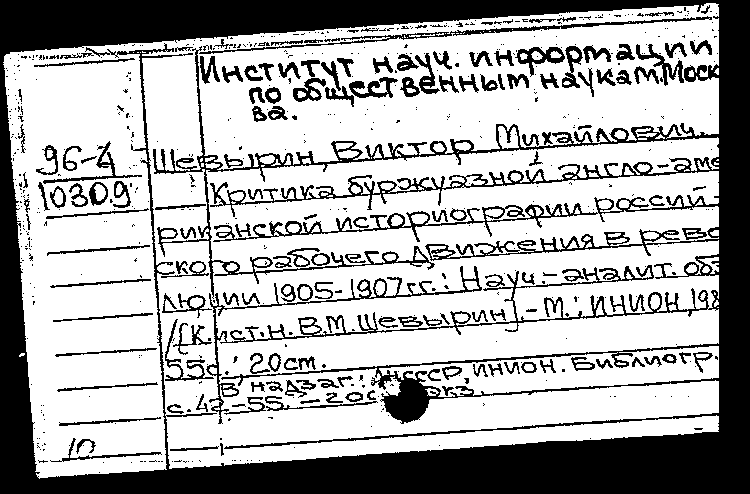 Институт науч. информации
по общественным наукам. Моск
ва.
96-4
10309
Шевырин, Виктор Михайлович.
Критика буржуазной англо-аме
риканской историографии россий-
ского рабочего движения в рево
люции 1905-1907 гг.: Науч.-аналит. обз
/[К.ист.н. В.М. Шевырин].- М.: ИНИОН, 198
55с.; 20см.
В надзаг.: АНСССР, ИНИОН. Библиогр.
с. 42-55. экз.
10